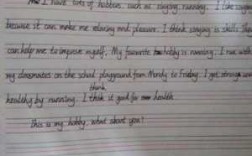 I have lots of hobbies, such as singing, running. I like singing
because it can make me relaxing and pleasure. I think singing is skill. It
can help me to improve myself. My favourite hobby is running. I run with
my classmates on the school playground from Monday to Friday. I get strong and
healthy by running. I think it good for health
think
This is my hobby, what about you?